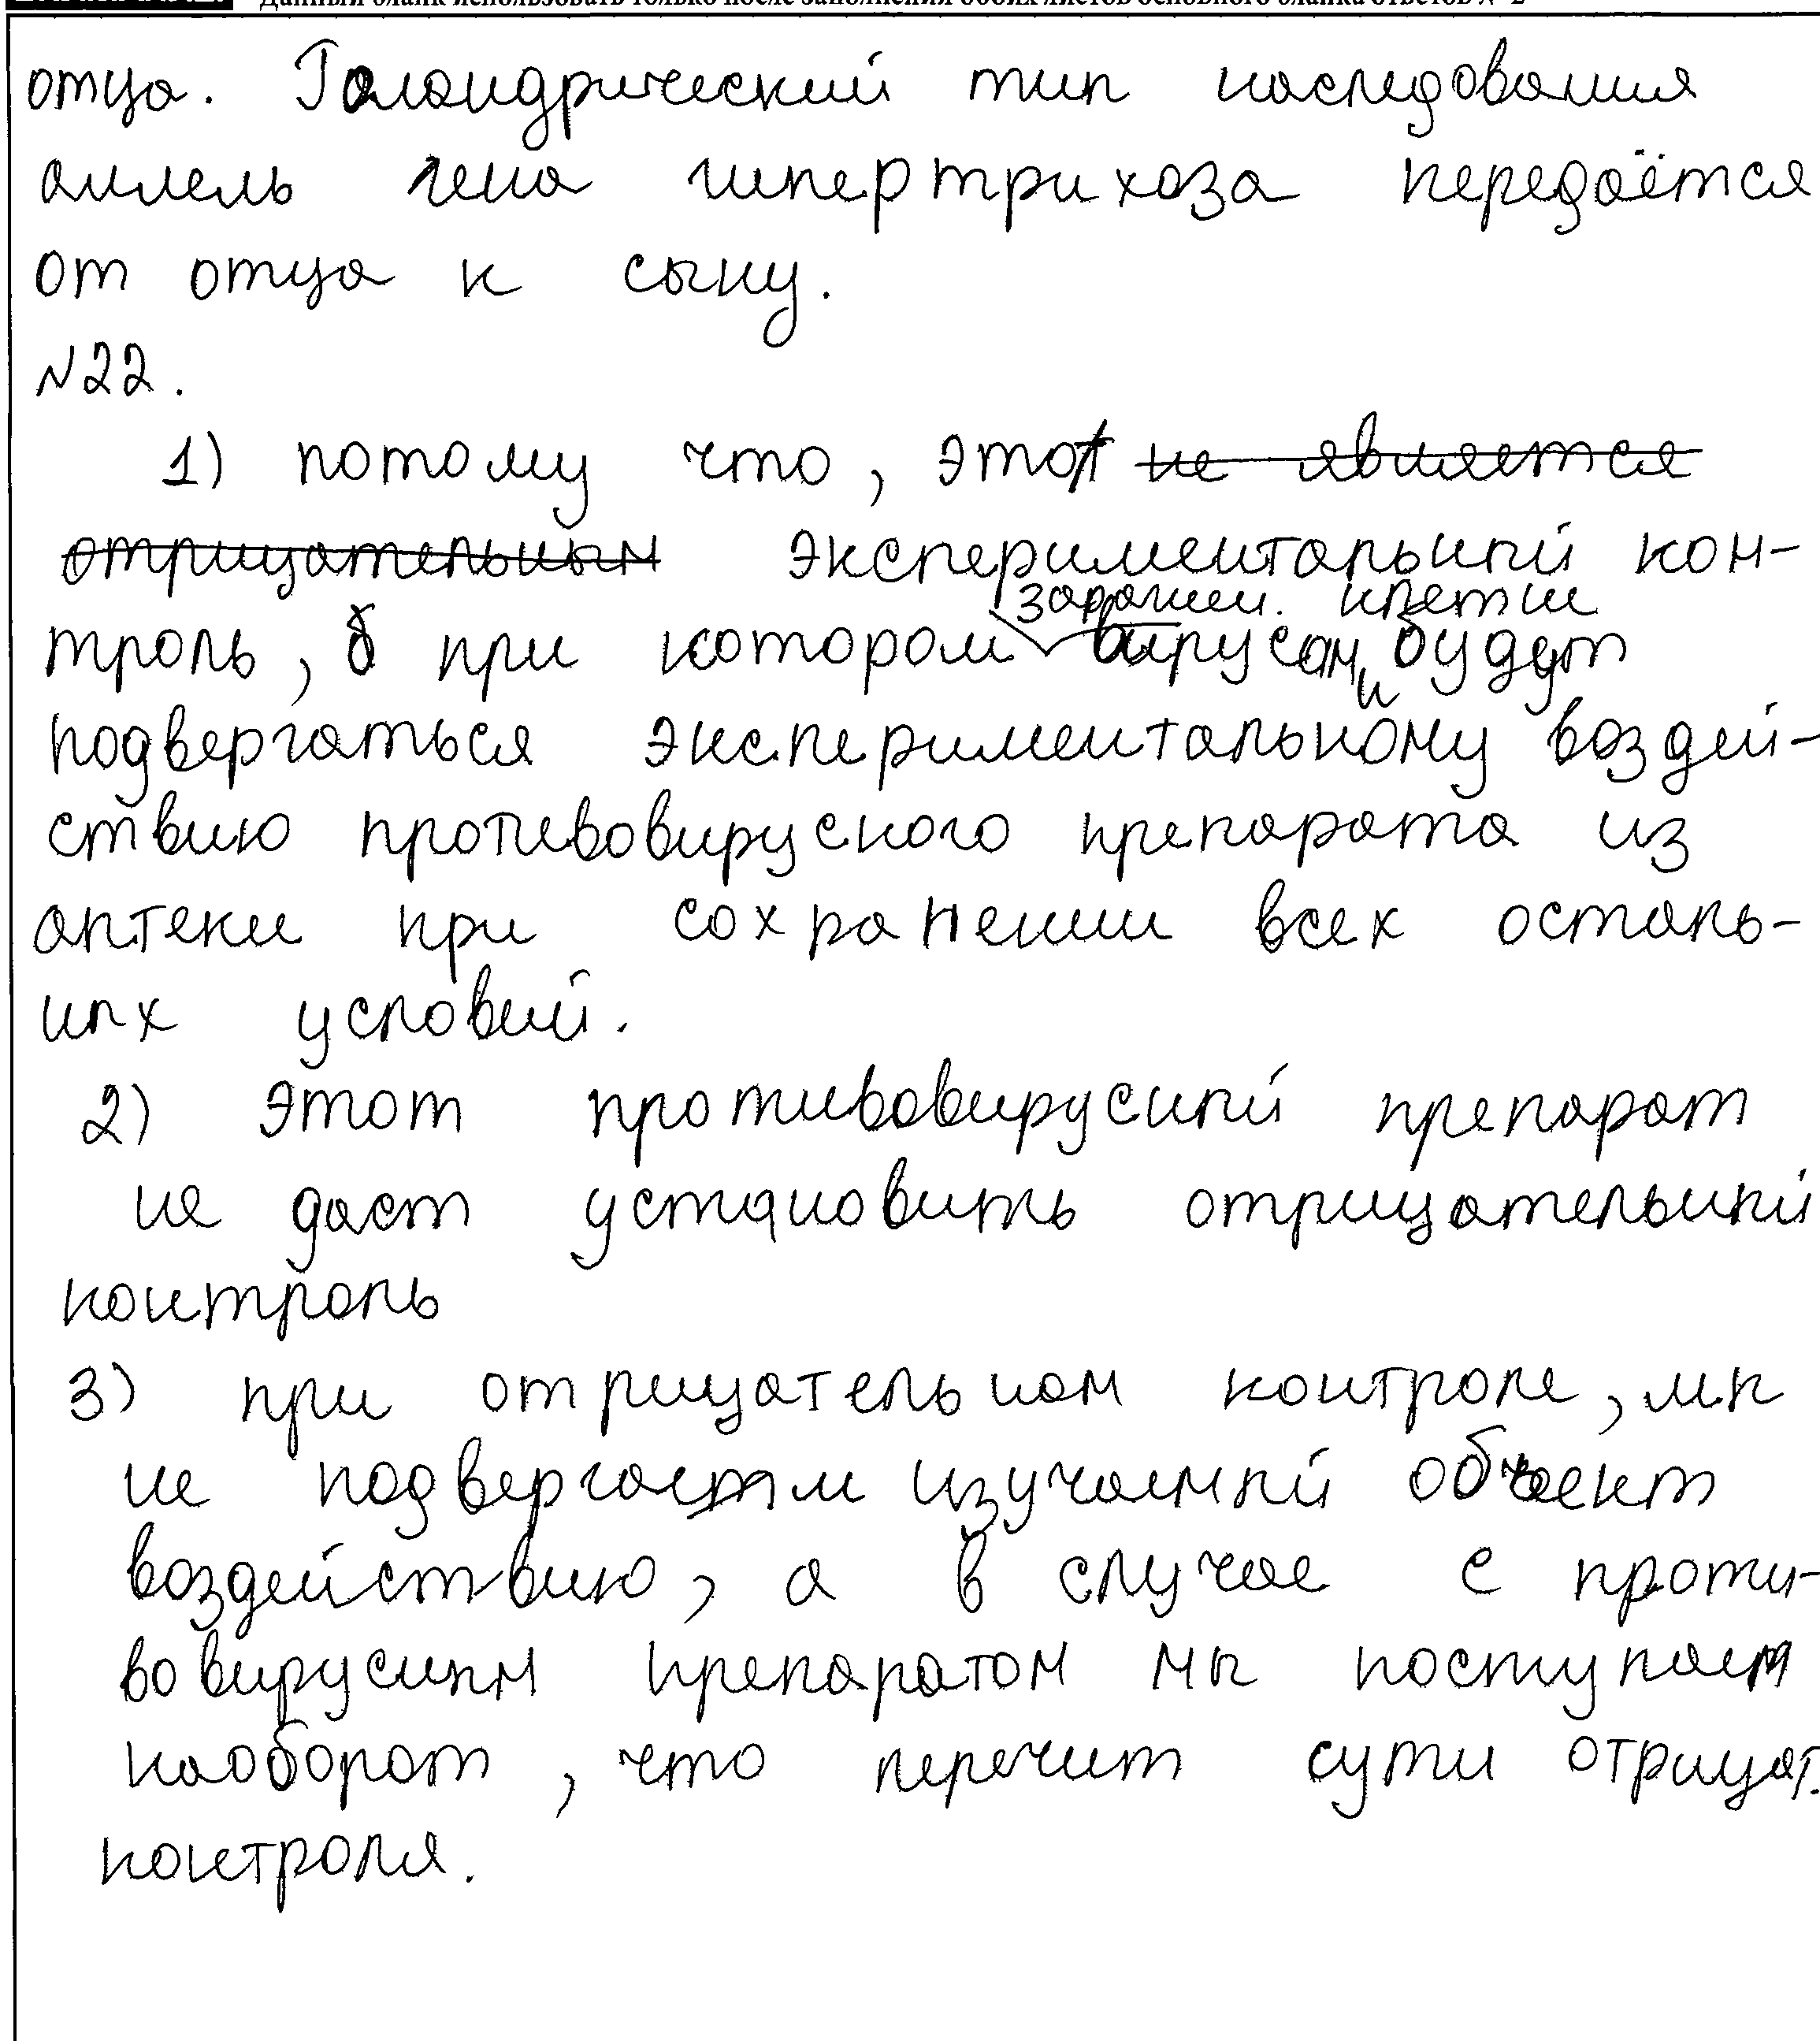 Данный бланк использовать только после заполнения обоих листов основного бланка ответов № 2
отца. Голандрический тип наследования
аллель гена гипертрихоза передаётся
от отца к сыну.
№22.
1) потому что, этот не является
отрицательным экспериментальный кон-
зараженн. клетки
троль, в при котором вирусами будут
подвергаться экспериментальному воздей-
ствию противовирусного препарата из
аптеки при сохранении всех осталь-
ных условий.
2) Этот противовирусный препарат
не даст установить отрицательный
контроль
3) при отрицательном контроле, мы
не подвергаем изучаемый объект
воздействию, а в случае с проти-
вовирусным препаратом мы поступаем
наоборот, что перечит сути отрицат.
контроля.